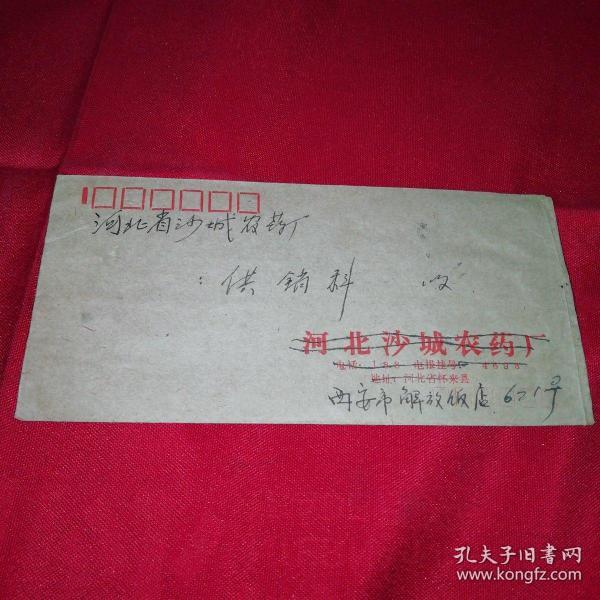 河北省沙城农药厂
：供销科 收
河北沙城农药厂
电话：188 电报挂号：4698
地址：河北省怀来县
西安市解放饭店 621号
孔夫子旧书网
www.kongfz.com